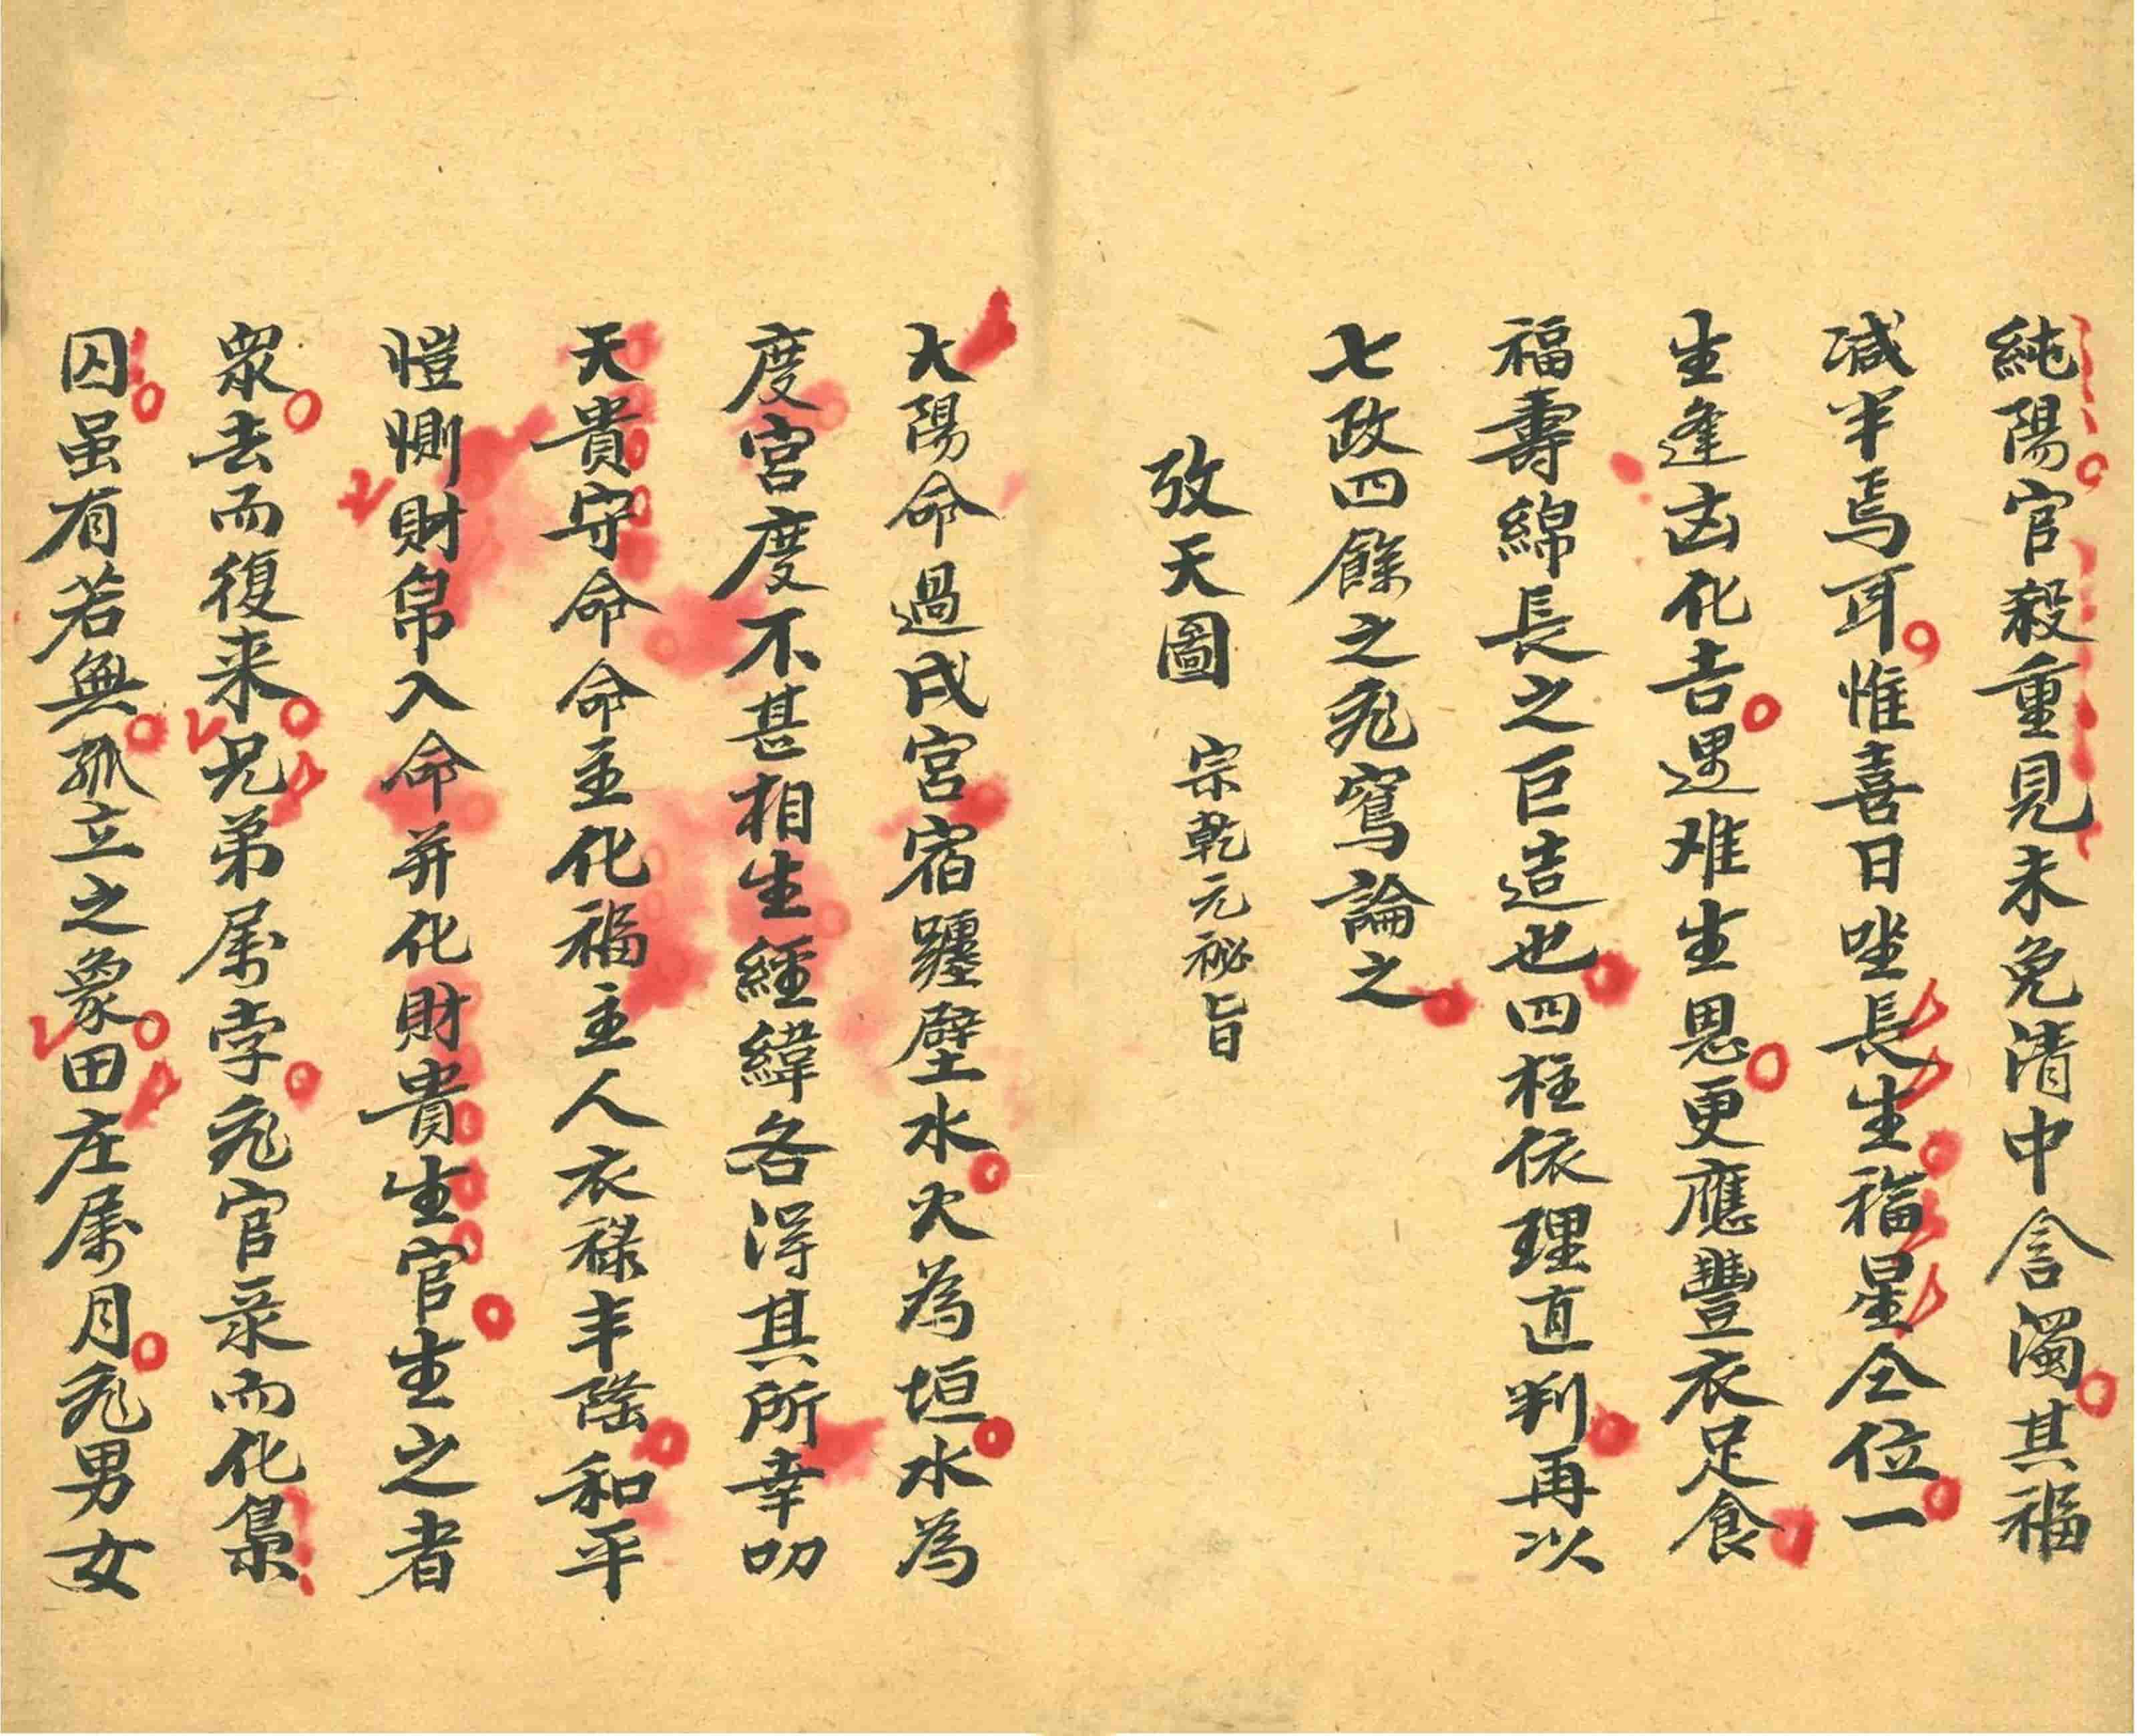 純陽官殺重見未免清中含濁其福
减半焉耳惟喜日坐長生福星仝位一
生逢凶化吉遇难生恩更應豐衣足食
福壽綿長之巨造也四柱依理直判再以
七政四餘之兆窵論之
攷天圖 宗乾元秘旨
大陽命過戌宮宿躔壁水火為垣水為
度宮度不甚相生經緯各得其所幸叨
天貴守命命主化福主人衣祿丰隆和平
愷惻財帛入命并化財貴生官生之者
眾去而復来兄弟属孛兆官录而化梟
囚虽有若無孤立之象田庄属月兆男女